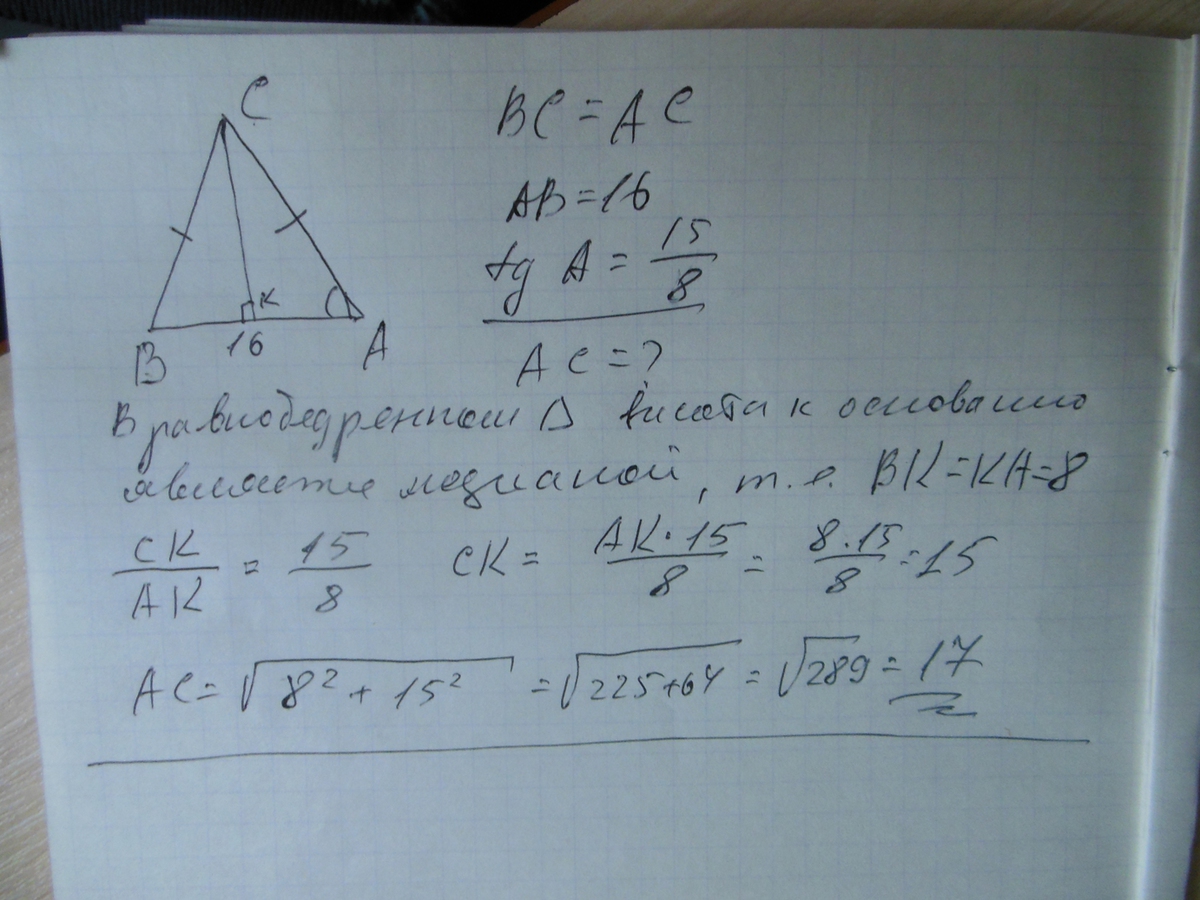 C
K
B
16
A
BC = AC
AB = 16
tg A = 15/8
AC = ?
В равнобедренном Δ висота к основанию
является медианой, т.е. BK = KA = 8
CK/AK = 15/8 CK = AK · 15/8 = 8 · 15/8 = 15
AC = √8² + 15² = √225+64 = √289 = 17